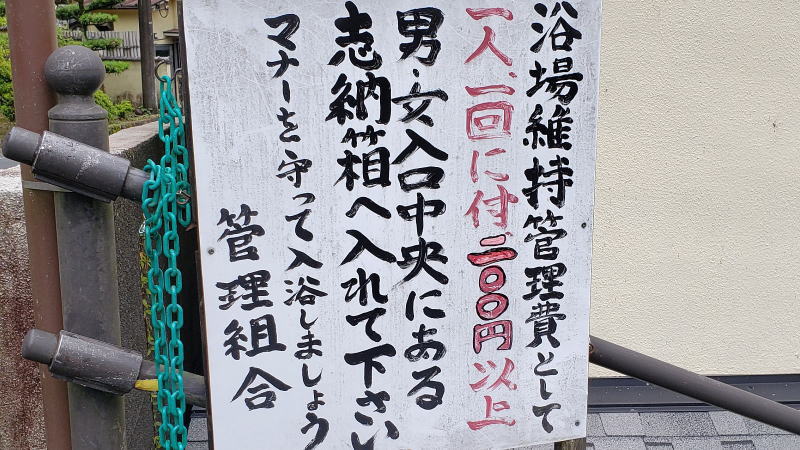 浴場維持管理費として
一人、一回に付二〇〇円以上
男・女入口中央にある
志納箱へ入れて下さい
マナーを守って入浴しましょう
管理組合